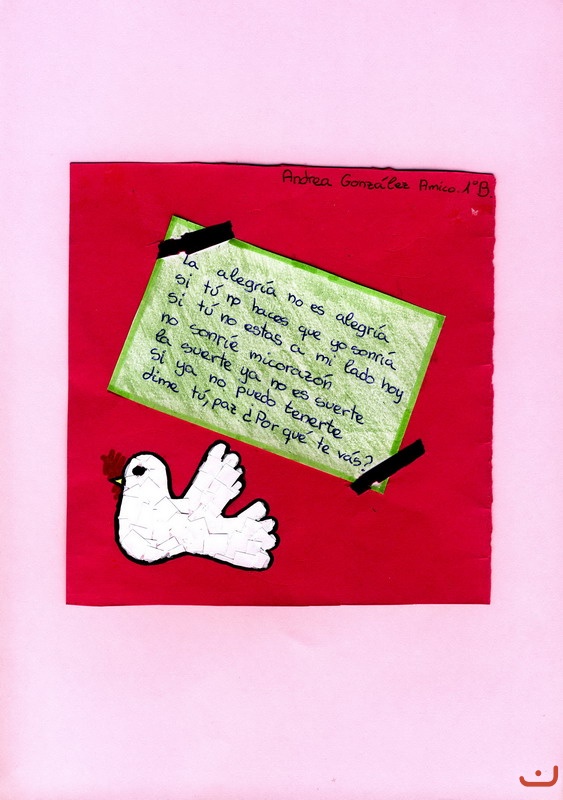 Andrea González Amico. 1º B.
La alegría no es alegría
si tú no haces que yo sonría
si tú no estas a mi lado hoy
no sonríe micorazón
la suerte ya no es suerte
si ya no puedo tenerte
dime tú, paz ¿Por qué te vás?